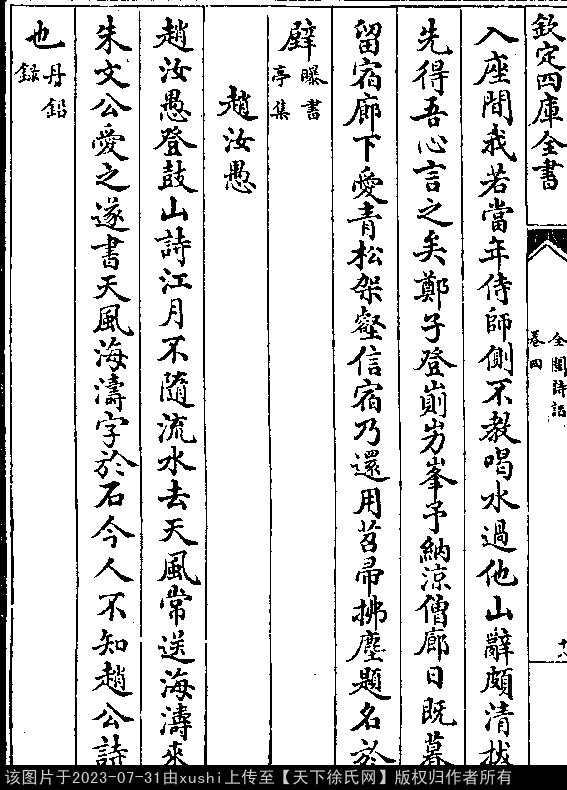 欽定四庫全書
全閩詩話
卷四
十八
入座間我若當年侍師側不教喝水過他山辭頗清拔
先得吾心言之矣鄭子登崱屴峯予納涼僧廊日既暮
留宿廊下愛青松架壑信宿乃還用苕帚拂塵題名於
壁曝書亭集
趙汝愚
趙汝愚登鼓山詩江月不隨流水去天風常送海濤來
朱文公愛之遂書天風海濤字於石今人不知趙公詩
也丹鉛録
该图片于2023-07-31由xushi上传至【天下徐氏网】版权归作者所有